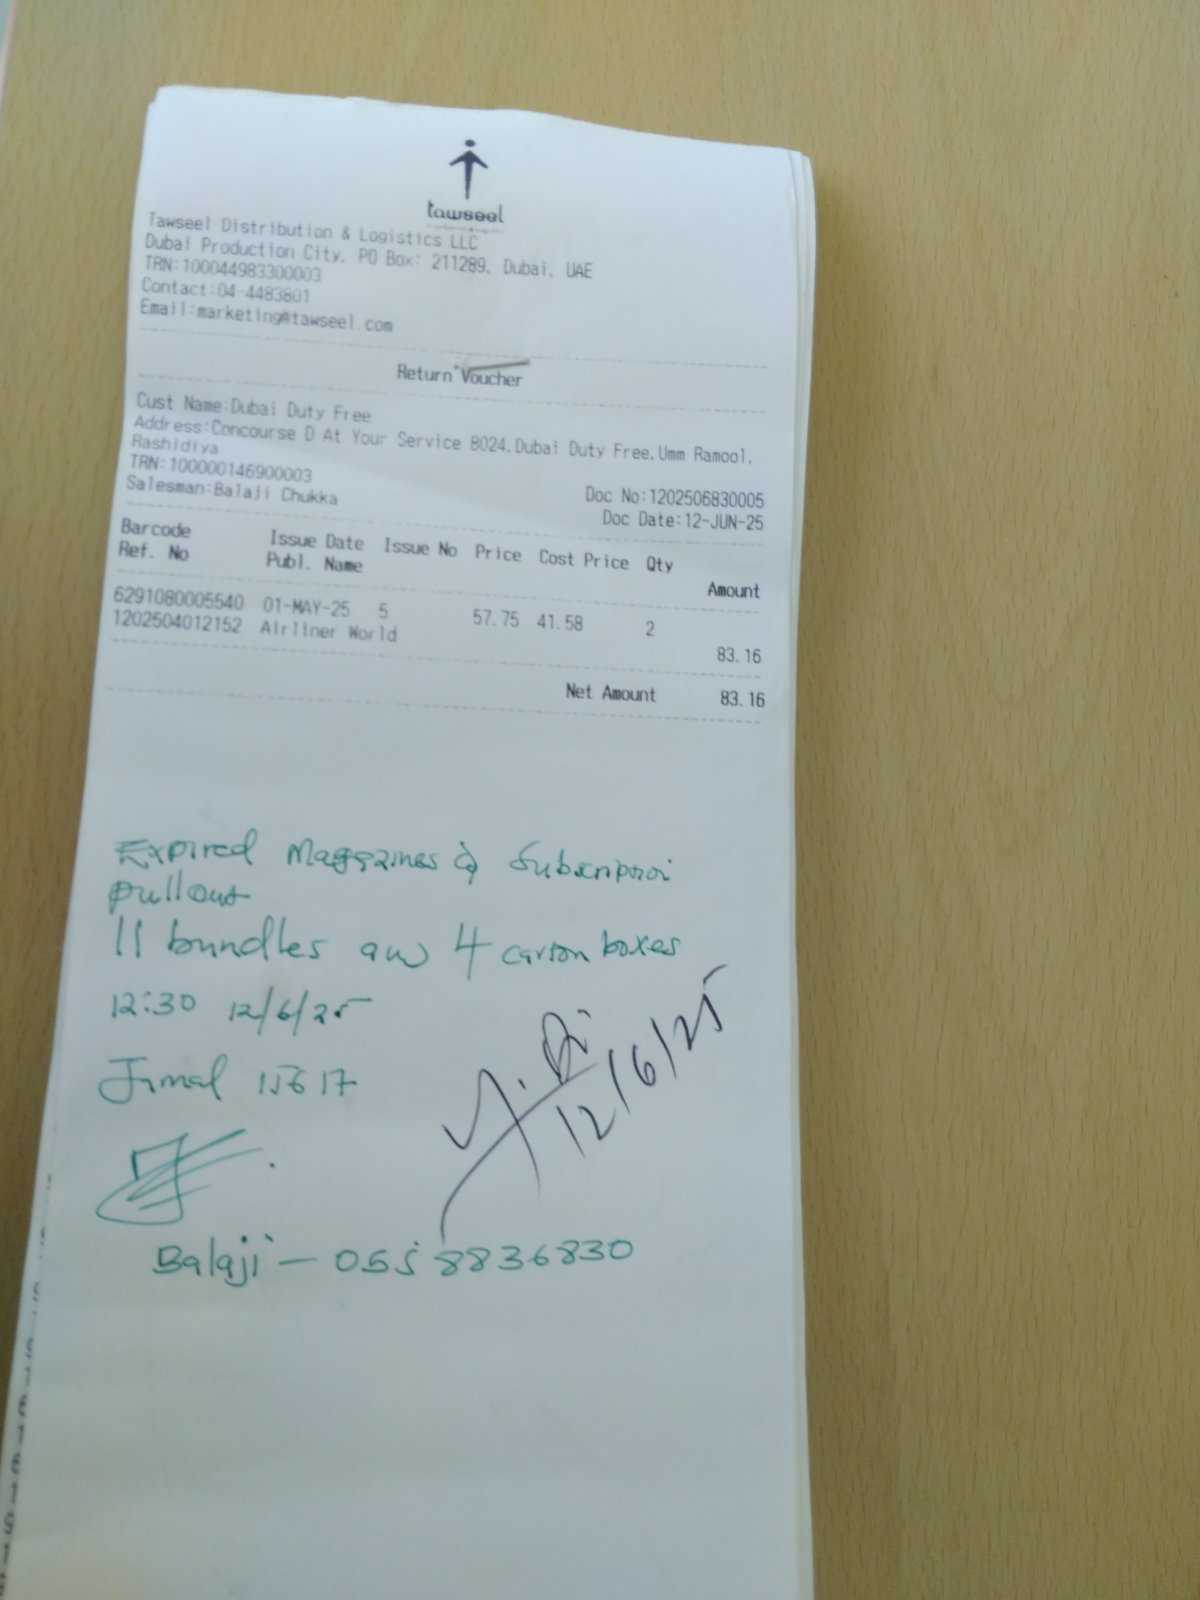 tawseel
Tawseel Distribution & Logistics LLC
Dubai Production City, PO Box: 211289, Dubai, UAE
TRN:100044983300003
Contact:04-4483801
Email:marketing@tawseel.com
Return Voucher
Cust Name:Dubai Duty Free
Address:Concourse D At Your Service 8024,Dubai Duty Free,Umm Ramool,
Rashidiya
TRN:100000146900003
Salesman:Balaji Chukka
Doc No:1202506830005
Doc Date:12-JUN-25
Barcode Issue Date Issue No Price Cost Price Qty Amount
Ref. No Publ. Name
6291080005540 01-MAY-25 5 57.75 41.58 2 83.16
1202504012152 Airliner World
Net Amount 83.16
Expired Magazines & Subscription
pullout
11 bundles and 4 carton boxes
12:30 12/6/25
Jimal 15617
12/6/25
Balaji - 055 8836830